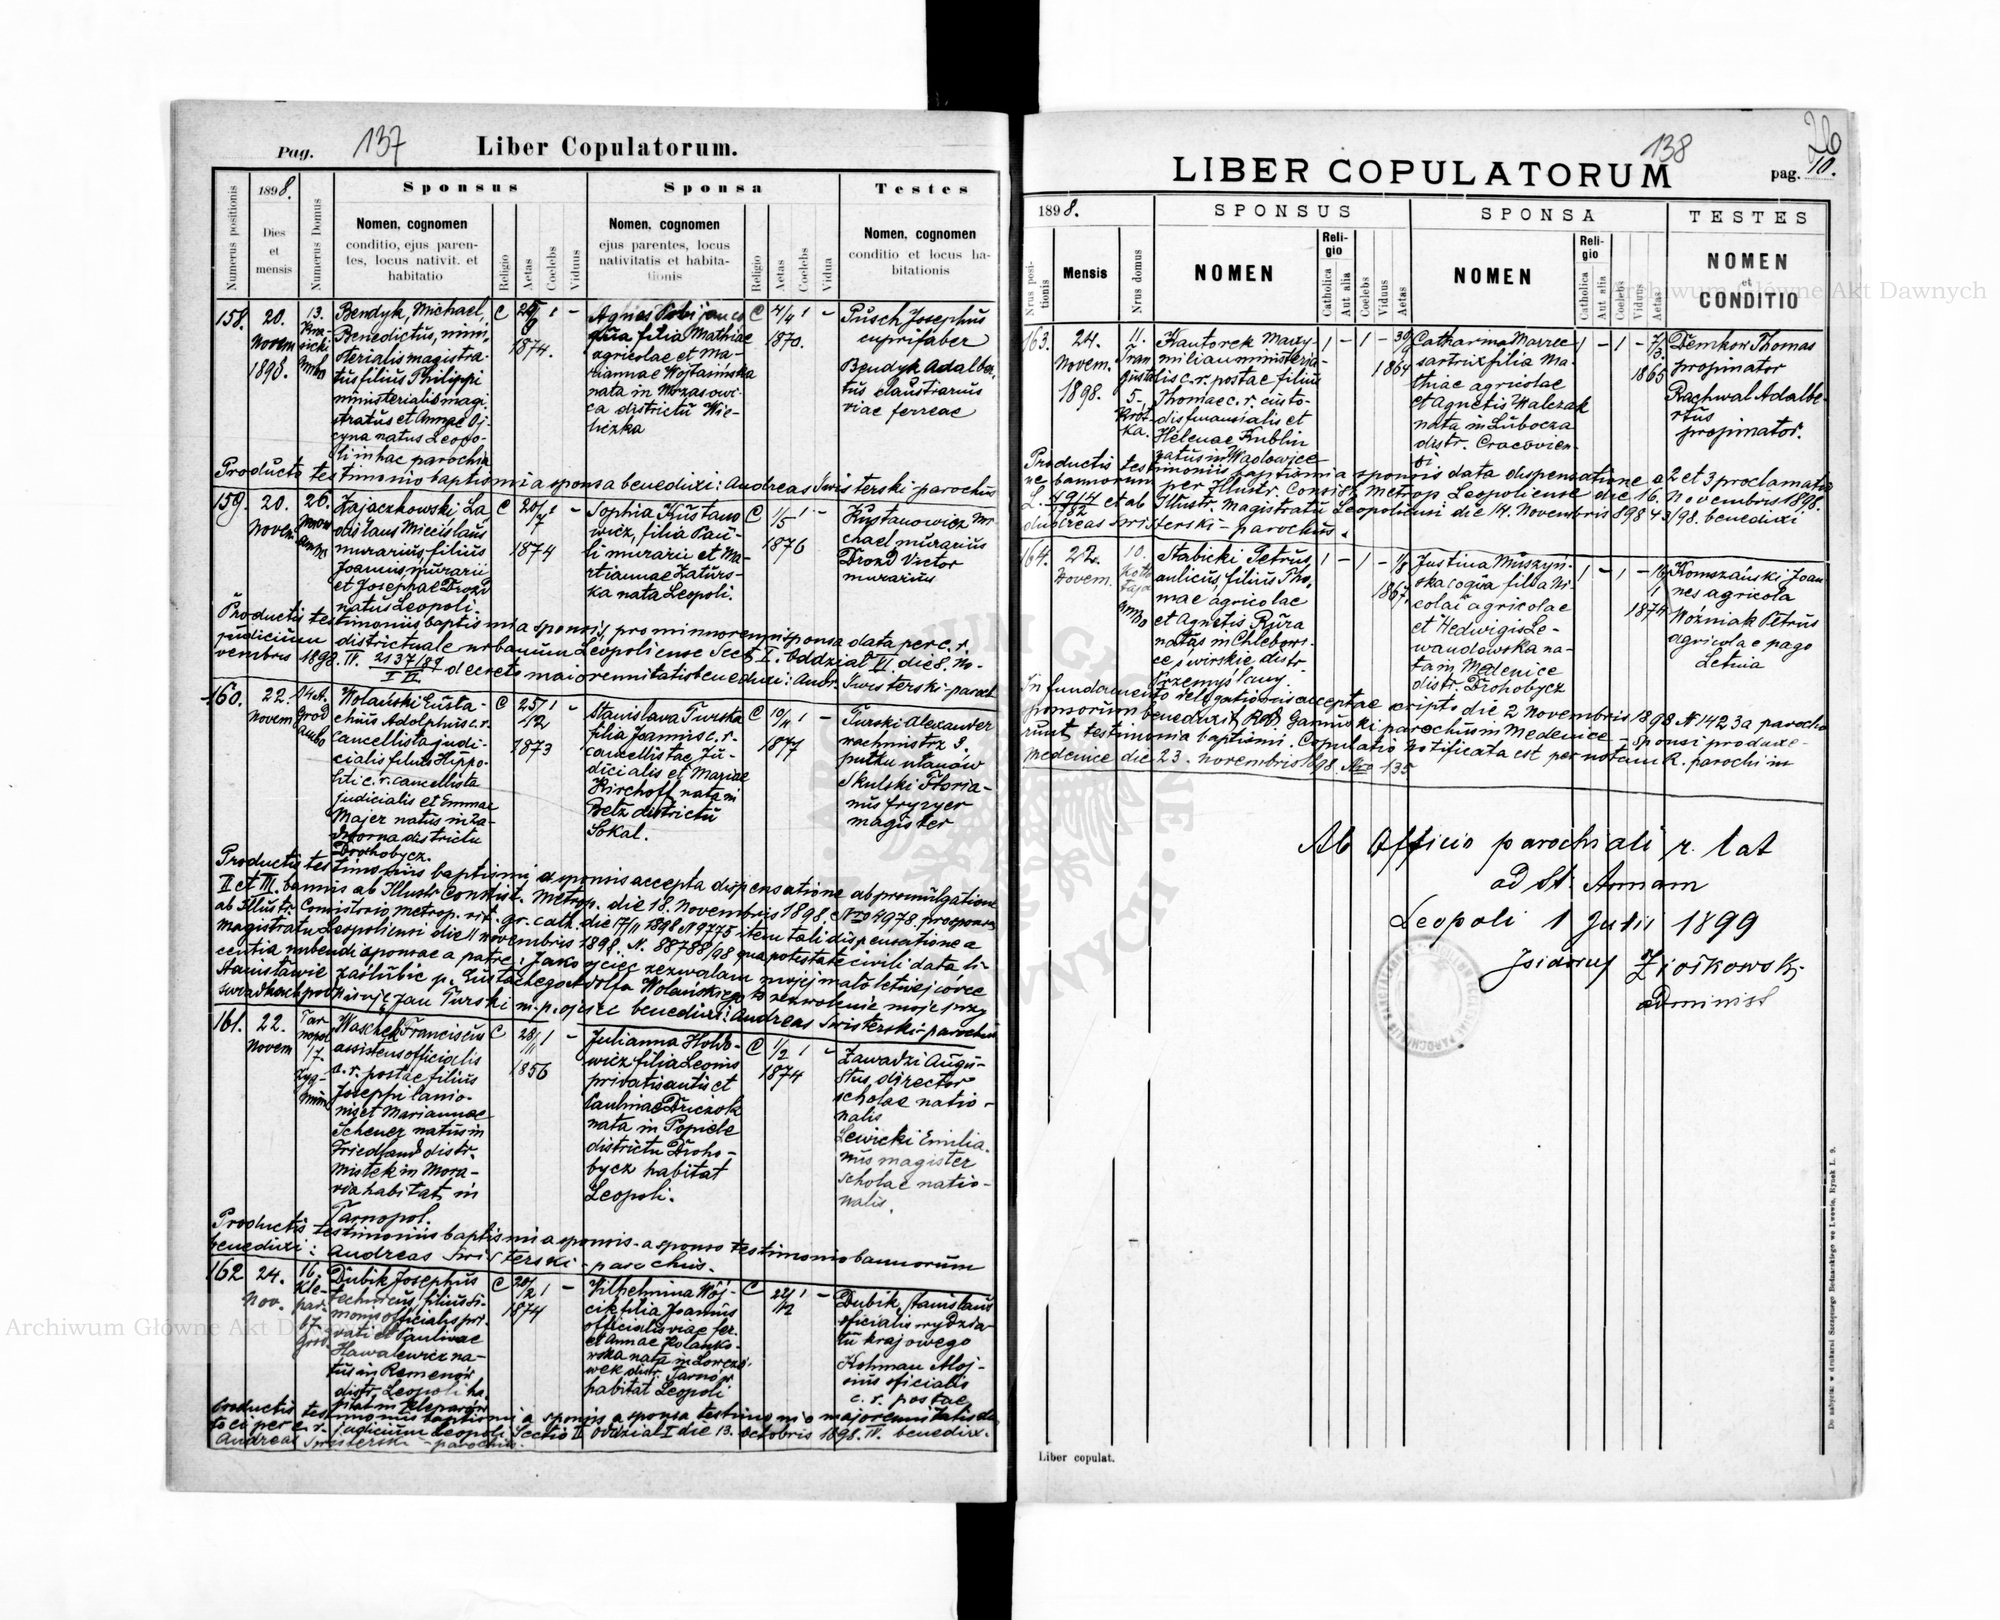 Pag. 137 Liber Copulatorum.
1898.
Sponsus Sponsa Testes
Numerus positionis
Dies et mensis
Numerus Domus
Nomen, cognomen
conditio, ejus paren-
tes, locus nativit. et
habitatio
Religio
Aetas
Coelebs
Viduus
Nomen, cognomen
ejus parentes, locus
nativitatis et habita-
tionis
Religio
Aetas
Coelebs
Vidua
Nomen, cognomen
conditio et locus ha-
bitationis
158. 20.
Novem
1898.
13.
Bendyk, Michael,
Benedictus, mini-
sterialis magistra-
tus filius Philippi
ministerialis magi
stratus et Annae Oj-
cyna natus Leopo-
li in hac parochia
C
1874.
filia Mathiae
agricolae et Ma-
riannae Wojtasińska
nata in
ca districtu Wie-
liczka
C 4/4 1 -
1870.
Pusch Josephus
cuprifaber
Bendyk Adalber-
tus claustrarius
viae ferreae
Producto testimonio baptismi a sponsa benedixi: Andreas Swisterski parochus
159. 20.
Novem.
26.
Zajaczkowski La
dislaus Miecislaus
murarius filius
Joannis murarii
et Josephae Drozd
natus Leopoli.
C
1874
Sophia Kustano
wicz, filia Pau-
li murarii et Ma-
rtiannae Zaturs-
ka nata Leopoli.
C 1/5 1 -
1876
Kustanowicz Mi
chael murarius
Drozd Victor
murarius
Productis testimoniis baptismi a sponsis, pro minorenni sponsa data per c. r.
judicium districtuale urbanum Leopoliense Sect I. Oddział VI die 8. No-
vembris 1898. IV. decreto maiorennitatis benedixi: Andr. Swisterski paroch
160. 22.
Novem
Wolański Eusta-
chius Adolphus c. r.
cancellista judi-
cialis filius Hippo-
liti c. r. cancellista
judicialis et Emmae
Majer natus in Za-
dworna districtu
Drohobycz.
C 25/12 1 -
1873
Stanislava Turska
filia Joannis c. r.
cancellistae Ju-
dicialis et Mariae
Kirchoff nata in
Belz districtu
Sokal.
C 10/11 1 -
1877
Turski Alexander
wachmistrz 3.
pułku ułanów
Skulski Floria-
nus fryzyer
magister
Productis testimoniis baptismi a sponsis accepta dispensatione ab promulgatione
II et III. bannis ab Illustr. Consist. Metrop. die 18. Novembris 1898. Nro 4978. pro sponsa
ab Illustr. Consistorio metrop. rit. gr. cath. die 17/11 1898 N 9775 - item tali dispensatione a
magistratu Leopoliensi die 11 novembris 1898. N. 88788/98 qua potestate civili data li-
centia nubendi sponsae a patre: Jako ojciec zezwalam mojej małoletniej córce
Stanisławie zaślubić p. Eustachego Adolfa Wolańskiego to zezwolenie moje przy
swiadkach podpisuję Jan Turski m.p. ojciec benedixi: Andreas Swisterski - parochus
161. 22.
Novem
Tar-
nopol
17.
Zyg-
Waschek Franciscus
assistens officialis
c. r. postae filius
Josephi
et Mariannae
Scheuer natus in
Friedland distr.
Mistek in Mora-
via habitat in
Tarnopol.
C 28/11 1 -
1856
Julianna Hołdo-
wicz filia Leonis
privatisantis et
Paulinae
nata in Popiele
districtu Droho-
bycz habitat
Leopoli.
C 1/2 1 -
1874
Zawadzi Augu-
stus, director
scholae natio-
nalis
Lewicki Emilia-
nus magister
scholae natio-
nalis.
Productis testimoniis baptismi a sponsis - a sponso testimonio bannorum
benedixi: Andreas Swisterski - parochus.
162 24.
Nov.
16.
Kle-
par.
67.
Grod.
Dubik Josephus
technicus, filius Si-
monis officialis pri-
vati et Paulinae
Hawalewicz na-
tus in Remenów
distr. Leopoli ha-
bitat in Kleparów
C
1874
Wilhelmina Wój-
cik filia Joannis
officialis viae fer.
et Annae Holanko-
wska nata in
distr. Tarnów
habitat Leopoli
C 22/12 1 -
Dubik Stanislaus
oficialis wydzia-
łu krajowego
Kohman Aloj-
sius oficialis
c. r. postae
Productis testimoniis baptismi a sponsis a sponsa testimonio majorennitatis da-
to ei per c. r. judicium Leopoli Sectio II Oddział I die 13. octobris 1898. IV. benedixi.
Andreas Swisterski - parochus.
138
LIBER COPULATORUM
pag. 10.
1898.
SPONSUS SPONSA TESTES
Nrus posi-
tionis
Mensis
Nrus domus
NOMEN
Reli-
gio
Catholica
Aut alia
Coelebs
Viduus
Aetas
NOMEN
Reli-
gio
Catholica
Aut alia
Coelebs
Viduus
Aetas
NOMEN
et
CONDITIO
163. 24.
Novem.
1898.
11.
5-
Krót-
ka.
Kantorek Maxy-
milian ministeria-
lis c. r. postae filius
Thomae c. r. custo-
dis finansialis et
Helenae Kublin
natus in Wadowice
1 - 1 -
1864
Catharina
sartrix filia Ma-
thiae agricolae
et Agnetis Walczak
nata in Lubocza
distr. Cracovien-
si
1 - 1 -
1865
Demkow Thomas
propinator
Rachwal Adalbe-
rtus
propinator.
Productis testimoniis baptismi a sponsis data dispensatione a 2 et 3 proclamatio
ne bannorum per Illustr. Consist. Metrop. Leopoliense die 16. Novembris 1898.
L. et ab Illustr. Magistratu Leopoliensi die 14. Novembris 898 /98. benedixi
Andreas Swisterski - parochus.
164. 22.
Novem.
10.
Stabicki Petrus,
aulicus, filius Tho-
mae agricolae
et Agnetis Rura
natus in Chlebowi-
ce świrskie distr.
Przemyślany.
1 - 1 -
1867.
Justina Muszyń-
ska coqua filia Ni-
colai agricolae
et Hedwigis Le-
wandowska na-
ta in Medenice
distr. Drohobycz
1 - 1 -
1874
Komszański Joan
nes agricola
Woźniak Petrus
agricola e pago
Letnia
In fundamento delegationis acceptae scripto die 2 Novembris 1898 N 1423 a parocho
sponsorum benedixit Rds Garnuski parochus in Medenice - Sponsi produxe-
runt testimonia baptismi. Copulatio notificata est per notam R. parochi in
Medenice die 23. novembris 1898. Nro 135
Ab Officio parochiali r. lat
ad St. Annam
Leopoli 1 Julii 1899
Isidorus Ziołkowski
administ
Liber copulat.
Do nabycia w drukarni Szczęsnego Bednarskiego we Lwowie, Rynek L. 9.
Archiwum Główne Akt Dawnych
Archiwum Główne Akt Dawnych